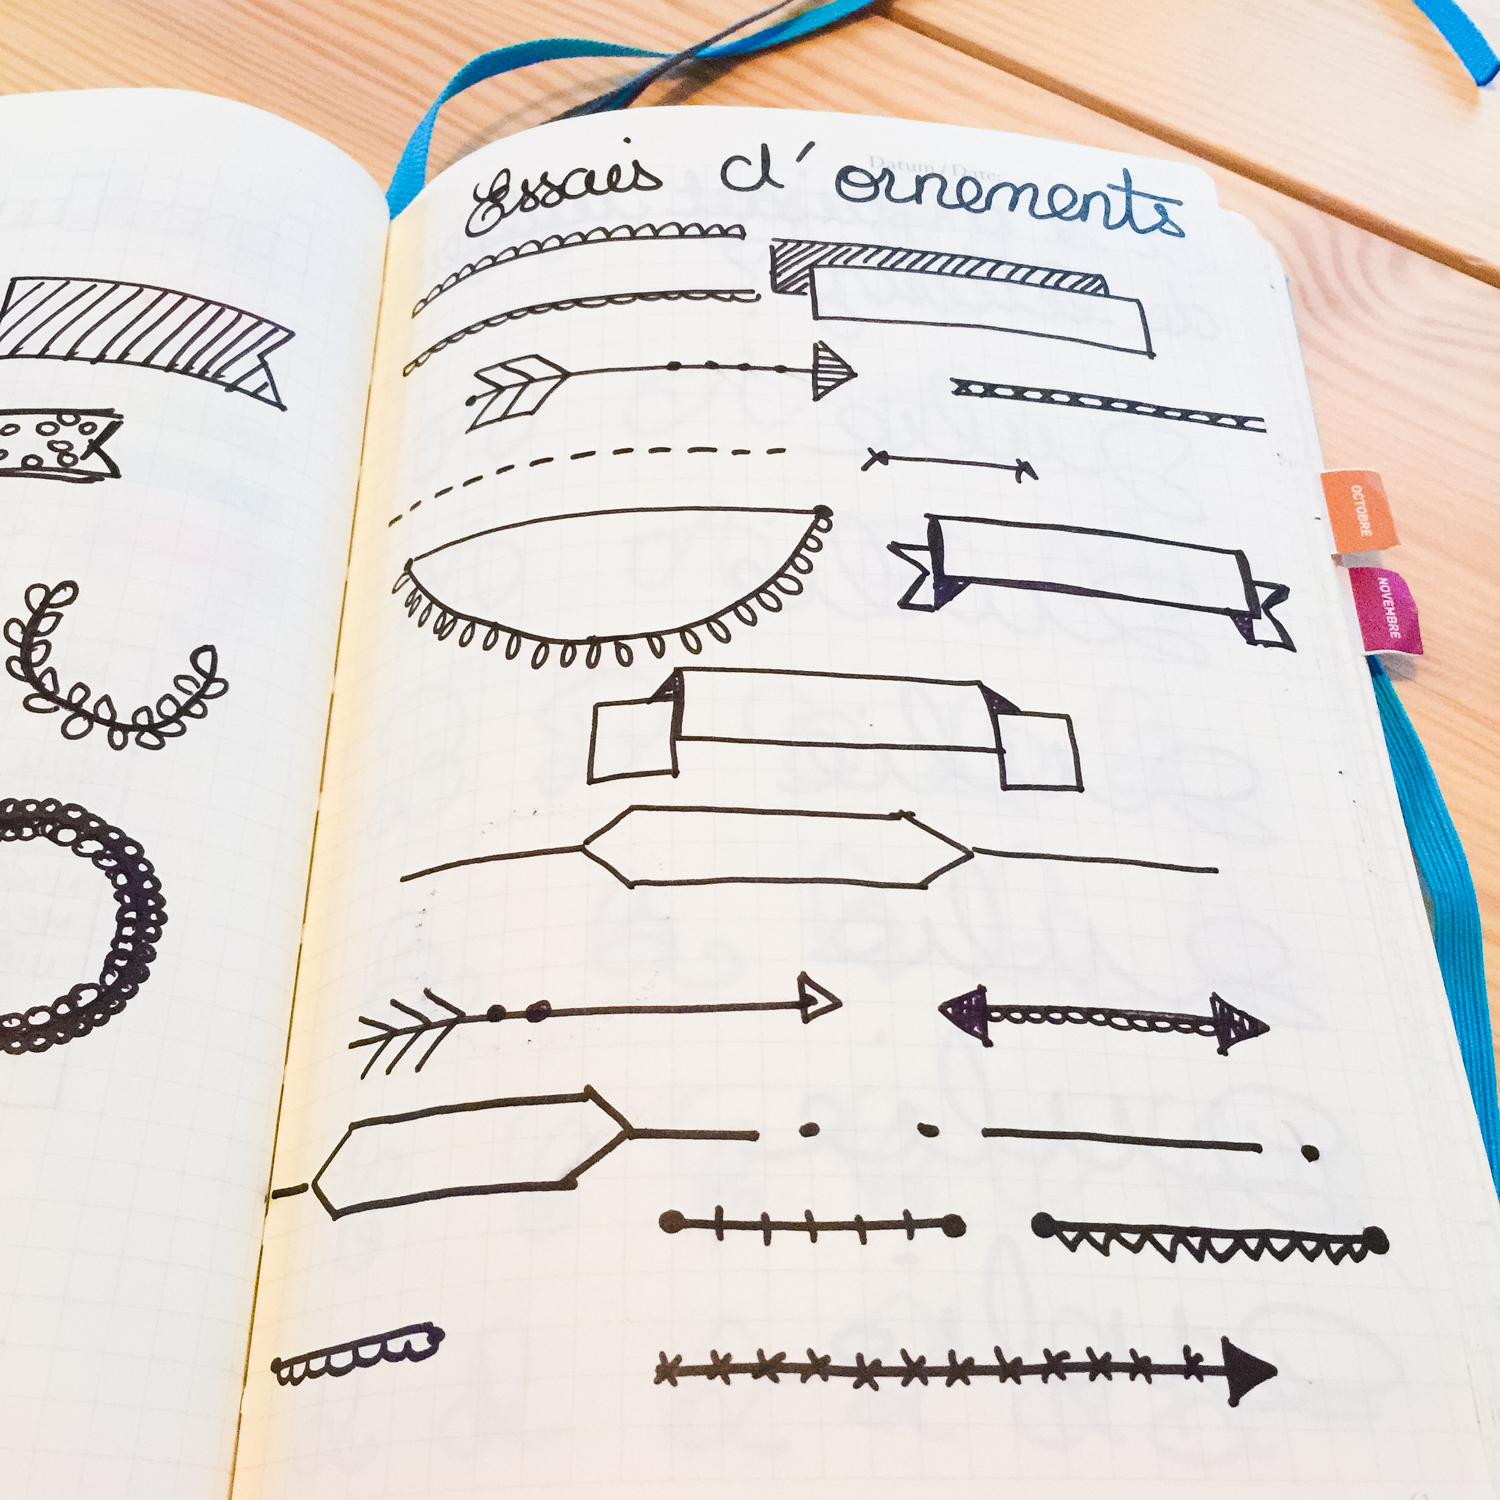 Datum / Date:
Essais d'ornements
OCTOBRE
NOVEMBRE